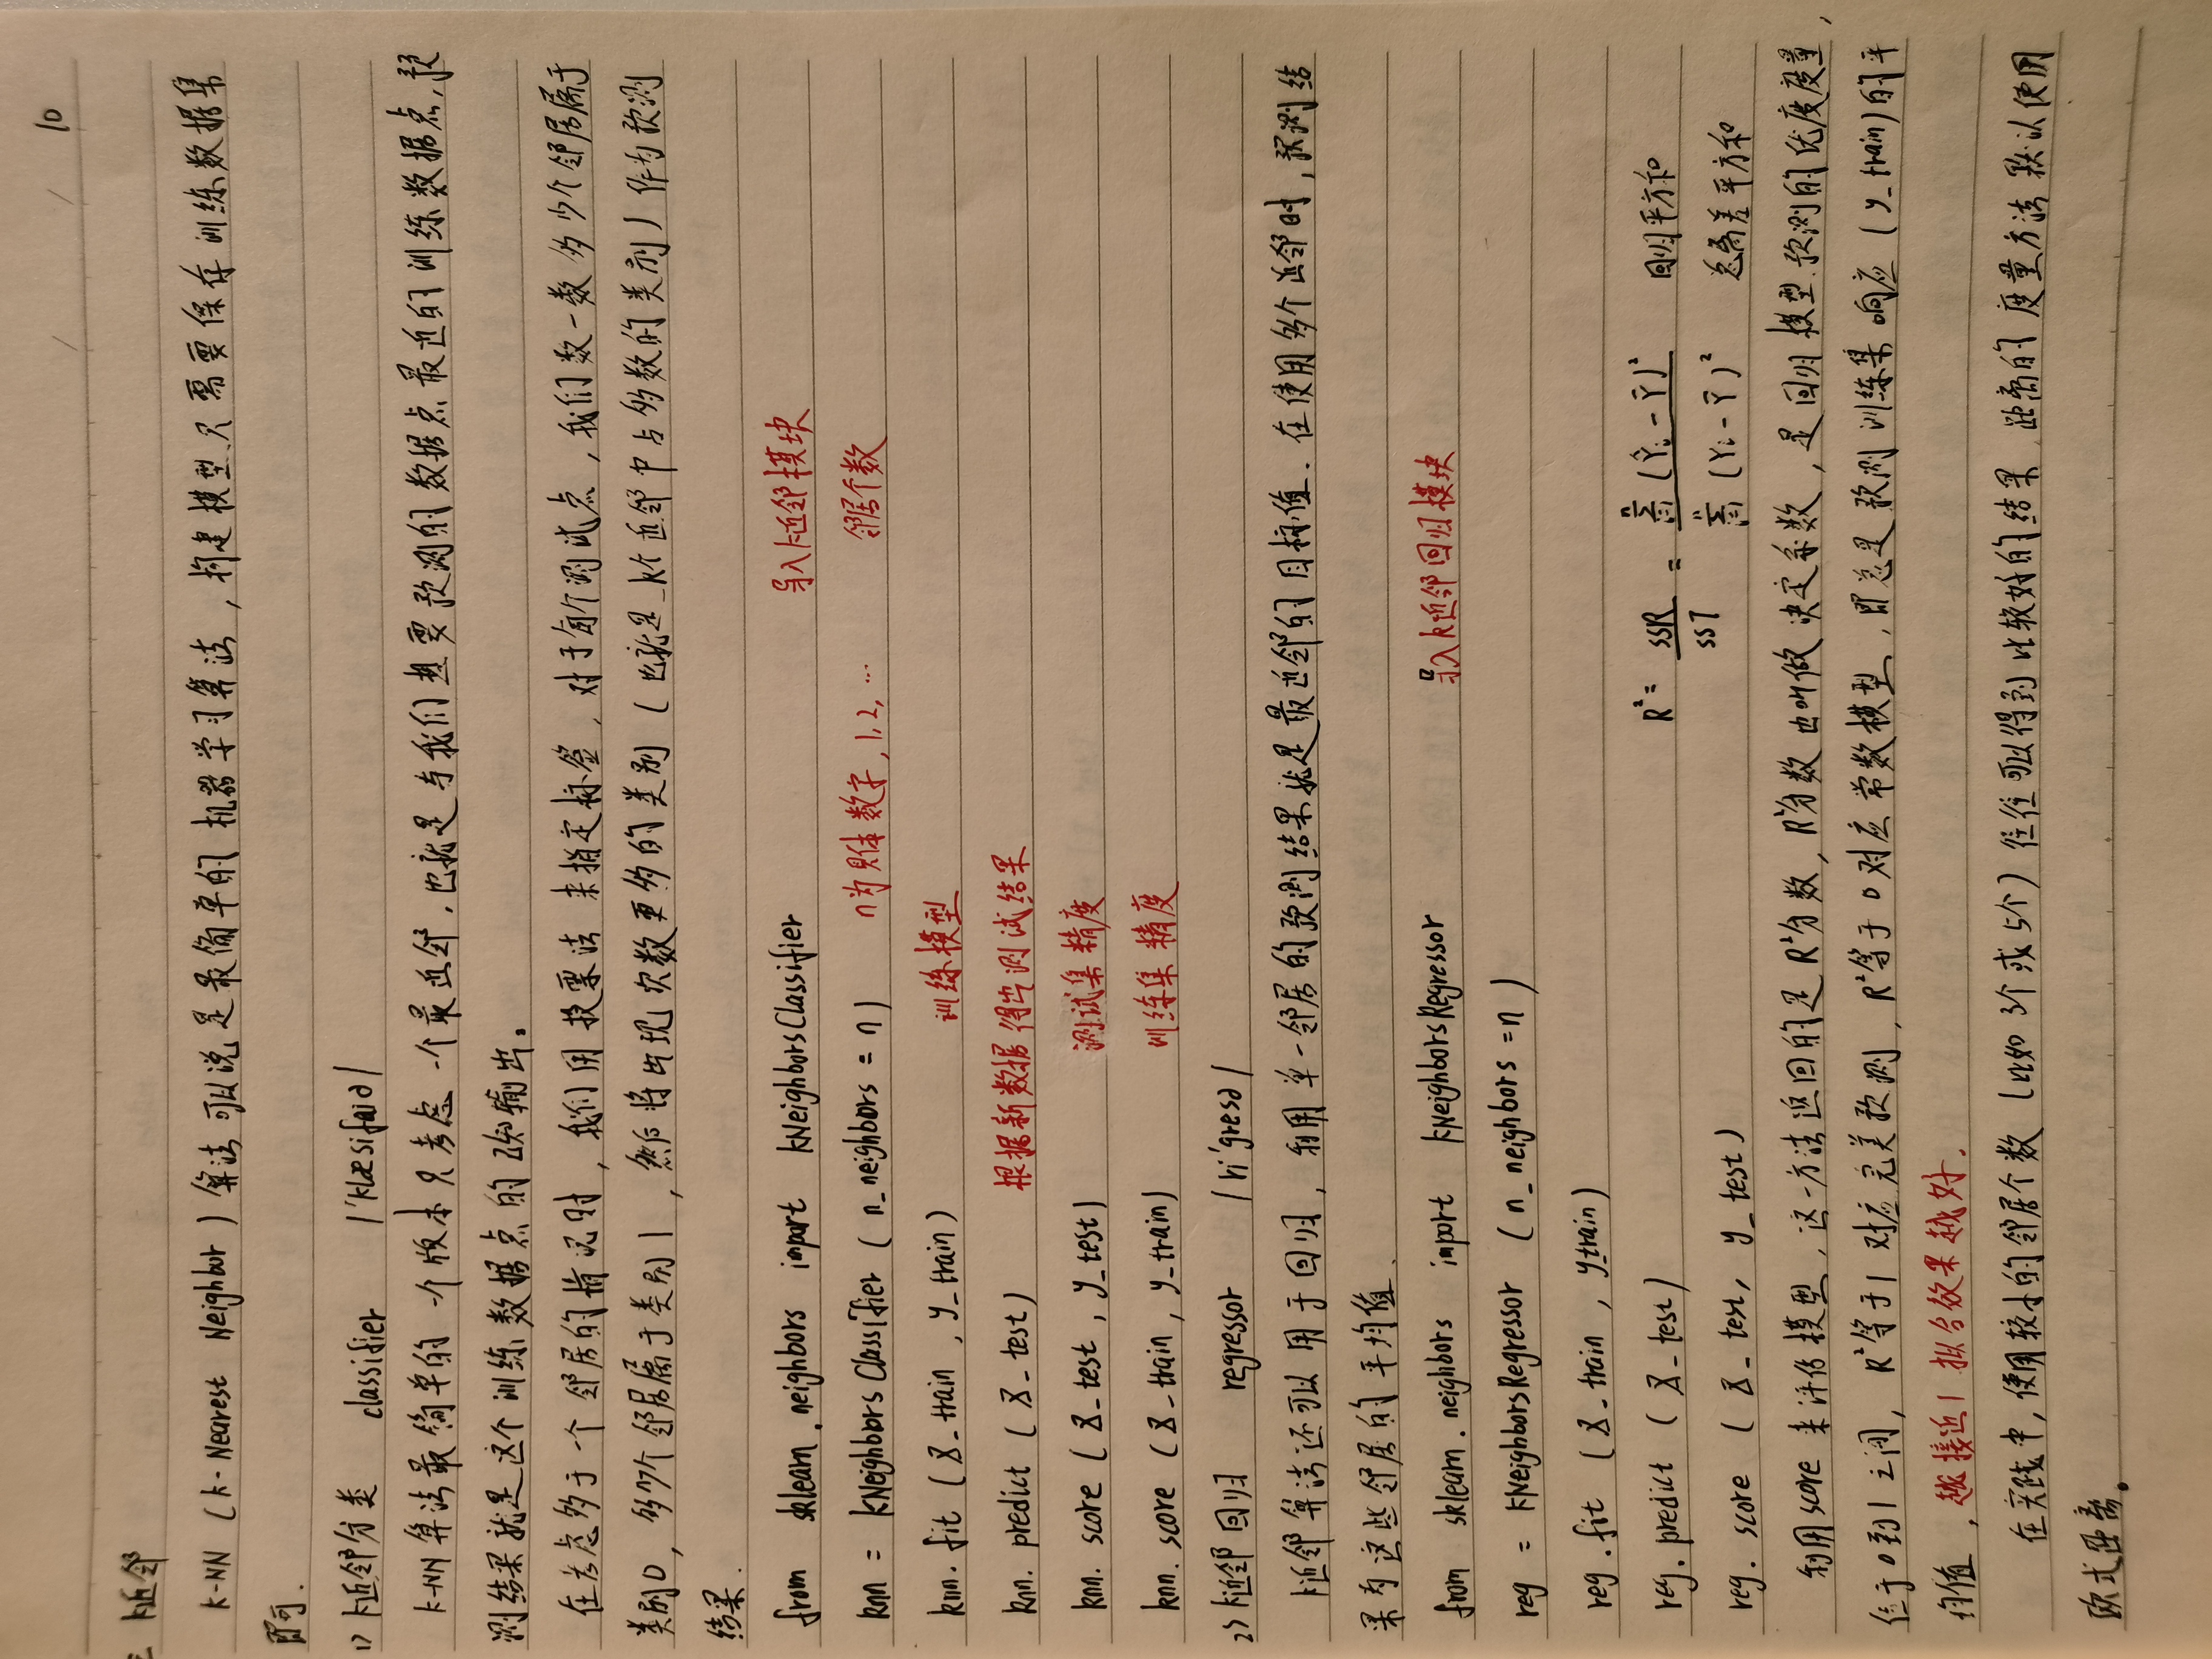 10
二 k近邻
k-NN (k-Nearest Neighbor) 算法可以说是最简单的机器学习算法，构建模型只需要保存训练数据集
即可.
1) k近邻分类 classifier /'klæsifaiə/
k-NN算法最简单的一个版本只考虑一个最近邻,也就是与我们想要预测的数据点最近的训练数据点,预
测结果就是这个训练数据点的已知输出。
在考虑多于一个邻居的情况时，我们用投票法来指定标签，对于每个测试点，我们数一数多少个邻居属于
类别0，多少个邻居属于类别1，然后将出现次数更多的类别(也就是k个近邻中占多数的类别)作为预测
结果.
from sklearn.neighbors import kNeighborsClassifier 导入k近邻模块
knn = kNeighborsClassifier (n_neighbors = n) n为具体数字,1,2,… 邻居个数
knn.fit (X_train, y_train) 训练模型
knn.predict (X_test) 根据新数据得出测试结果
knn.score (X_test, y_test) 测试集精度
knn.score (X_train, y_train) 训练集精度
2) k近邻回归 regressor /ri'gresə/
k近邻算法还可以用于回归，利用单一邻居的预测结果就是最近邻的目标值.在使用多个近邻时,预测结
果为这些邻居的平均值.
from sklearn.neighbors import kNeighborsRegressor 导入k近邻回归模块
reg = kNeighborsRegressor (n_neighbors = n)
reg.fit (X_train, y_train)
reg.predict (X_test) R² = SSR/SST = Σⁿᵢ₌₁(Ŷi-Ȳ)² / Σⁿᵢ₌₁(Yi-Ȳ)² 回归平方和
reg.score (X_test, y_test) 总离差平方和
利用score来评估模型，这一方法返回的是R²分数，R²分数也叫做决定系数，是回归模型预测的优度度量，
位于0到1之间，R²等于1对应完美预测，R²等于0对应常数模型，即总是预测训练集响应(y_train)的平
均值，越接近1拟合效果越好.
在实践中,使用较小的邻居个数(比如3个或5个)往往可以得到比较好的结果.距离的度量方法默认使用
欧式距离。